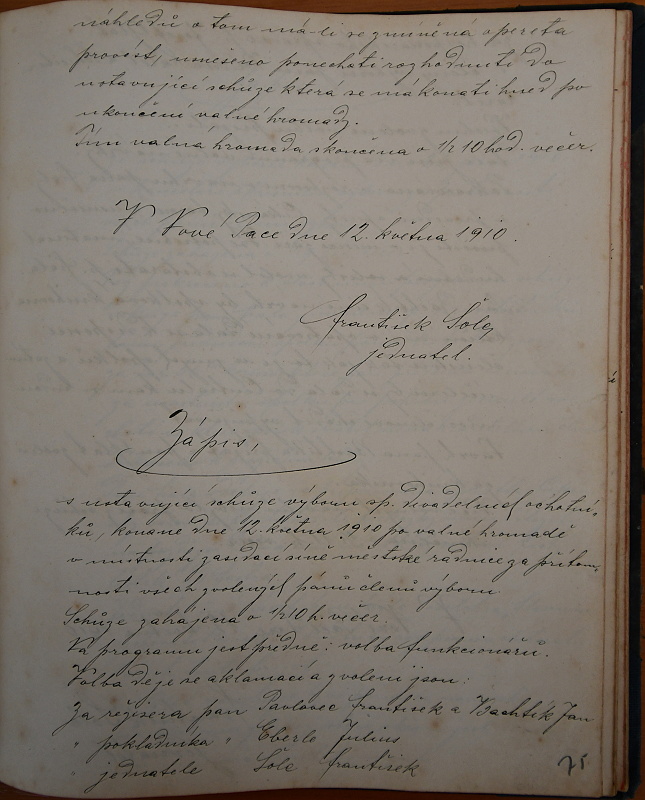 náhledů o tom má-li se zmíněná opereta
provést, usneseno ponechati rozhodnutí do
ustavující schůze ktera se má konati hned po
ukončení valné hromady.
Tím valná hromada skončena o 1/2 10 hod. večer.
V Nové Pace dne 12. května 1910.
František Šolc
jednatel.
Zápis,
s ustavující schůze výboru sp. divadelních ochotní-
ků, konané dne 12. května 1910 po valné hromadě
v místnosti zasedací síně městské radnice za přítom-
nosti všech zvolených pánů členů výboru
Schůze zahájena o 1/2 10 h. večer.
Na programu jest předně: volba funkcionářů.
Volba děje se aklamací a zvoleni jsou:
Za režisera pan Pavlovec František a Bachtík Jan
" pokladníka " Eberle Julius
" jednatele Šolc František
75